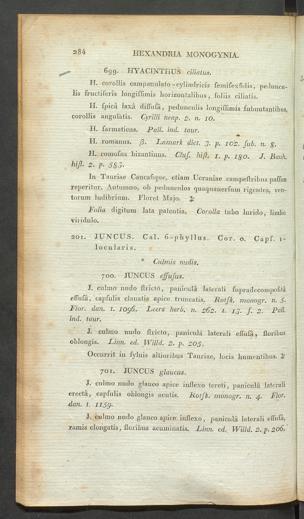 284
HEXANDRIA MONOGYNIA.
699. HYACINTHUS ciliatus.
H. corollis campanulato-cylindricis semisexfidis, peduncu-
lis fructiferis longissimis horizontalibus, foliis ciliatis.
H. spicâ laxâ diffusâ, pedunculis longissimis subnutantibus,
corollis angulatis. Cyrilli neap. 2. n. 10.
H. sarmaticus. Pall. ind. taur.
H. romanus. β. Lamark dict. 3. p. 192. sub. n. 8.
H. comosus bizantinus. Clus. hist. 1. p. 180. J. Bauh.
hist. 2. p. 585.
In Tauriae Caucasique, etiam Ucraniae campestribus passim
reperitur. Autumno, ob pedunculos quaquaversum rigentes, ven-
torum ludibrium. Floret Majo. ♃
Folia digitum lata patentia. Corolla tubo lurido, limbo
viridulo.
201. JUNCUS. Cal. 6-phyllus. Cor. 0. Caps. 1-
locularis.
* Culmis nudis.
700. JUNCUS effusus.
J. culmo nudo stricto, paniculâ laterali supradecompositâ
effusâ, capsulis clauatis apice truncatis. Rotsk. monogr. n. 5.
Flor. dan. t. 1096. Leers herb. n. 262. t. 13. f. 2. Pall.
ind. taur.
J. culmo nudo stricto, paniculâ laterali effusâ, floribus
oblongis. Linn. ed. Willd. 2. p. 205.
Occurrit in syluis altioribus Tauriae, locis humentibus. ♃
701. JUNCUS glaucus.
J. culmo nudo glauco apice inflexo tereti, paniculâ laterali
erectâ, capsulis oblongis acutis. Rotsk. monogr. n. 4. Flor.
dan. t. 1159.
J. culmo nudo glauco apice inflexo, paniculâ laterali effusâ,
ramis elongatis, floribus acuminatis. Linn. ed. Willd. 2. p. 206.